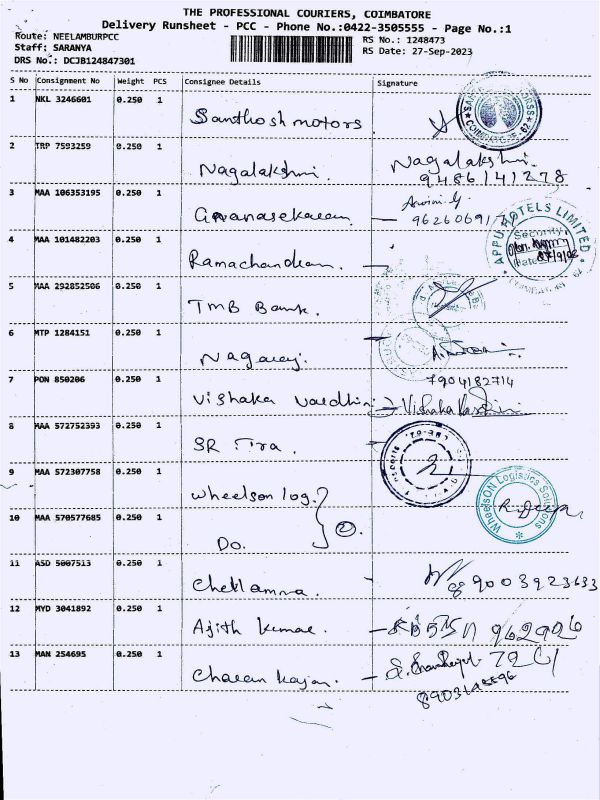 THE PROFESSIONAL COURIERS, COIMBATORE
Delivery Runsheet - PCC - Phone No.:0422-3505555 - Page No.:1
Route: NEELAMBURPCC
RS No.: 1248473
Staff: SARANYA
RS Date: 27-Sep-2023
DRS No.: DCJB124847301
S No Consignment No Weight PCS Consignee Details Signature
1 NKL 3246601 0.250 1 Santhosh motors
2 TRP 7593259 0.250 1 Nagalakshmi. Nagalakshmi.
9486141278
3 MAA 106353195 0.250 1 Gnanasekaran
APPU HOTELS LIMITED
Security
4 MAA 101482203 0.250 1 Ramachandran.
5 MAA 292852506 0.250 1 TMB Bank.
6 MTP 1284151 0.250 1 Nagaraj.
7904182714
7 PON 850206 0.250 1 Vishaka Vardhini
8 MAA 572752393 0.250 1 SR
9 MAA 572307758 0.250 1 Wheelson log. 2
WheelsON Logistics Solutions
10 MAA 570577685 0.250 1 Do.
11 ASD 5007513 0.250 1 Chellamma. 89003923633
12 MYD 3041892 0.250 1 Ajith Kumar.
13 MAN 254695 0.250 1 Charan Rajan.